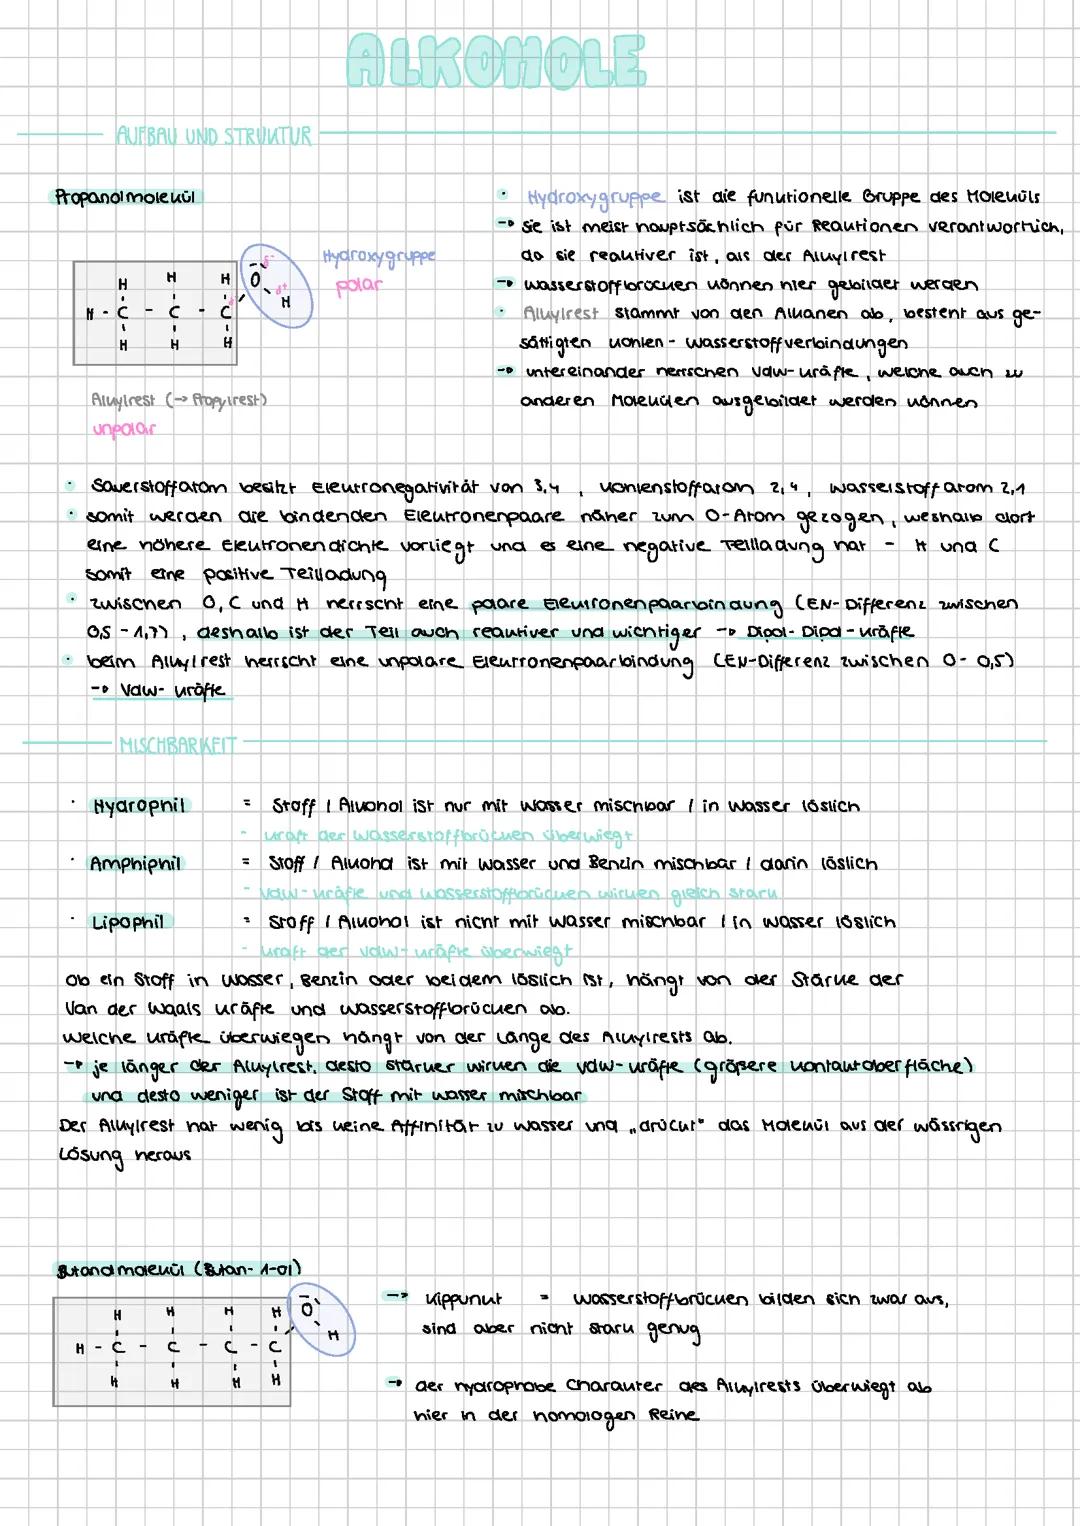 ALKOHOLE
AUFBAU UND STRUKTUR
Propanolmolekül
Hydroxygruppe
polar
δ-
O
δ+
H
δ+
H H H
H - C - C - C
H H H
Alkylrest (→ Propylrest)
unpolar
· Hydroxygruppe ist die funktionelle Gruppe des Moleküls
→ Sie ist meist hauptsächlich für Reaktionen verantwortlich,
da sie reaktiver ist, als der Alkylrest
→ Wasserstoffbrücken können hier gebildet werden
· Alkylrest stammt von den Alkanen ab, besteht aus ge-
sättigten Kohlen-wasserstoffverbindungen
→ untereinander herrschen VdW-Kräfte, welche auch zu
anderen Molekülen ausgebildet werden können
· Sauerstoffatom besitzt Elektronegativität von 3,4, Kohlenstoffatom 2,4, Wasserstoffatom 2,1
· somit werden die bindenden Elektronenpaare näher zum O-Atom gezogen, weshalb dort
eine höhere Elektronendichte vorliegt und es eine negative Teilladung hat - H und C
somit eine positive Teilladung
· zwischen O, C und H herrscht eine polare Elektronenpaarbindung (EN-Differenz zwischen
0,5 - 1,7), deshalb ist der Teil auch reaktiver und wichtiger → Dipol-Dipol-Kräfte
· beim Alkylrest herrscht eine unpolare Elektronenpaarbindung (EN-Differenz zwischen 0- 0,5)
→ VdW-Kräfte
MISCHBARKEIT
· Hydrophil = Stoff / Alkohol ist nur mit Wasser mischbar / in Wasser löslich
- Kraft der Wasserstoffbrücken überwiegt
· Amphiphil = Stoff / Alkohol ist mit Wasser und Benzin mischbar / darin löslich
- VdW-Kräfte und Wasserstoffbrücken wirken gleich stark
· Lipophil = Stoff / Alkohol ist nicht mit Wasser mischbar / in Wasser löslich
- Kraft der VdW-Kräfte überwiegt
Ob ein Stoff in Wasser, Benzin oder beidem löslich ist, hängt von der Stärke der
Van der Waals Kräfte und Wasserstoffbrücken ab.
Welche Kräfte überwiegen hängt von der Länge des Alkylrests ab.
→ je länger der Alkylrest, desto stärker wirken die VdW-Kräfte (größere Kontaktoberfläche)
und desto weniger ist der Stoff mit Wasser mischbar
Der Alkylrest hat wenig bis keine Affinität zu Wasser und „drückt" das Molekül aus der wässrigen
Lösung heraus
Butanolmolekül (Butan-1-ol)
O
H
H H H H
H - C - C - C - C
H H H H
→ Kippunkt = Wasserstoffbrücken bilden sich zwar aus,
sind aber nicht stark genug
→ der hydrophobe Charakter des Alkylrests überwiegt ab
hier in der homologen Reihe